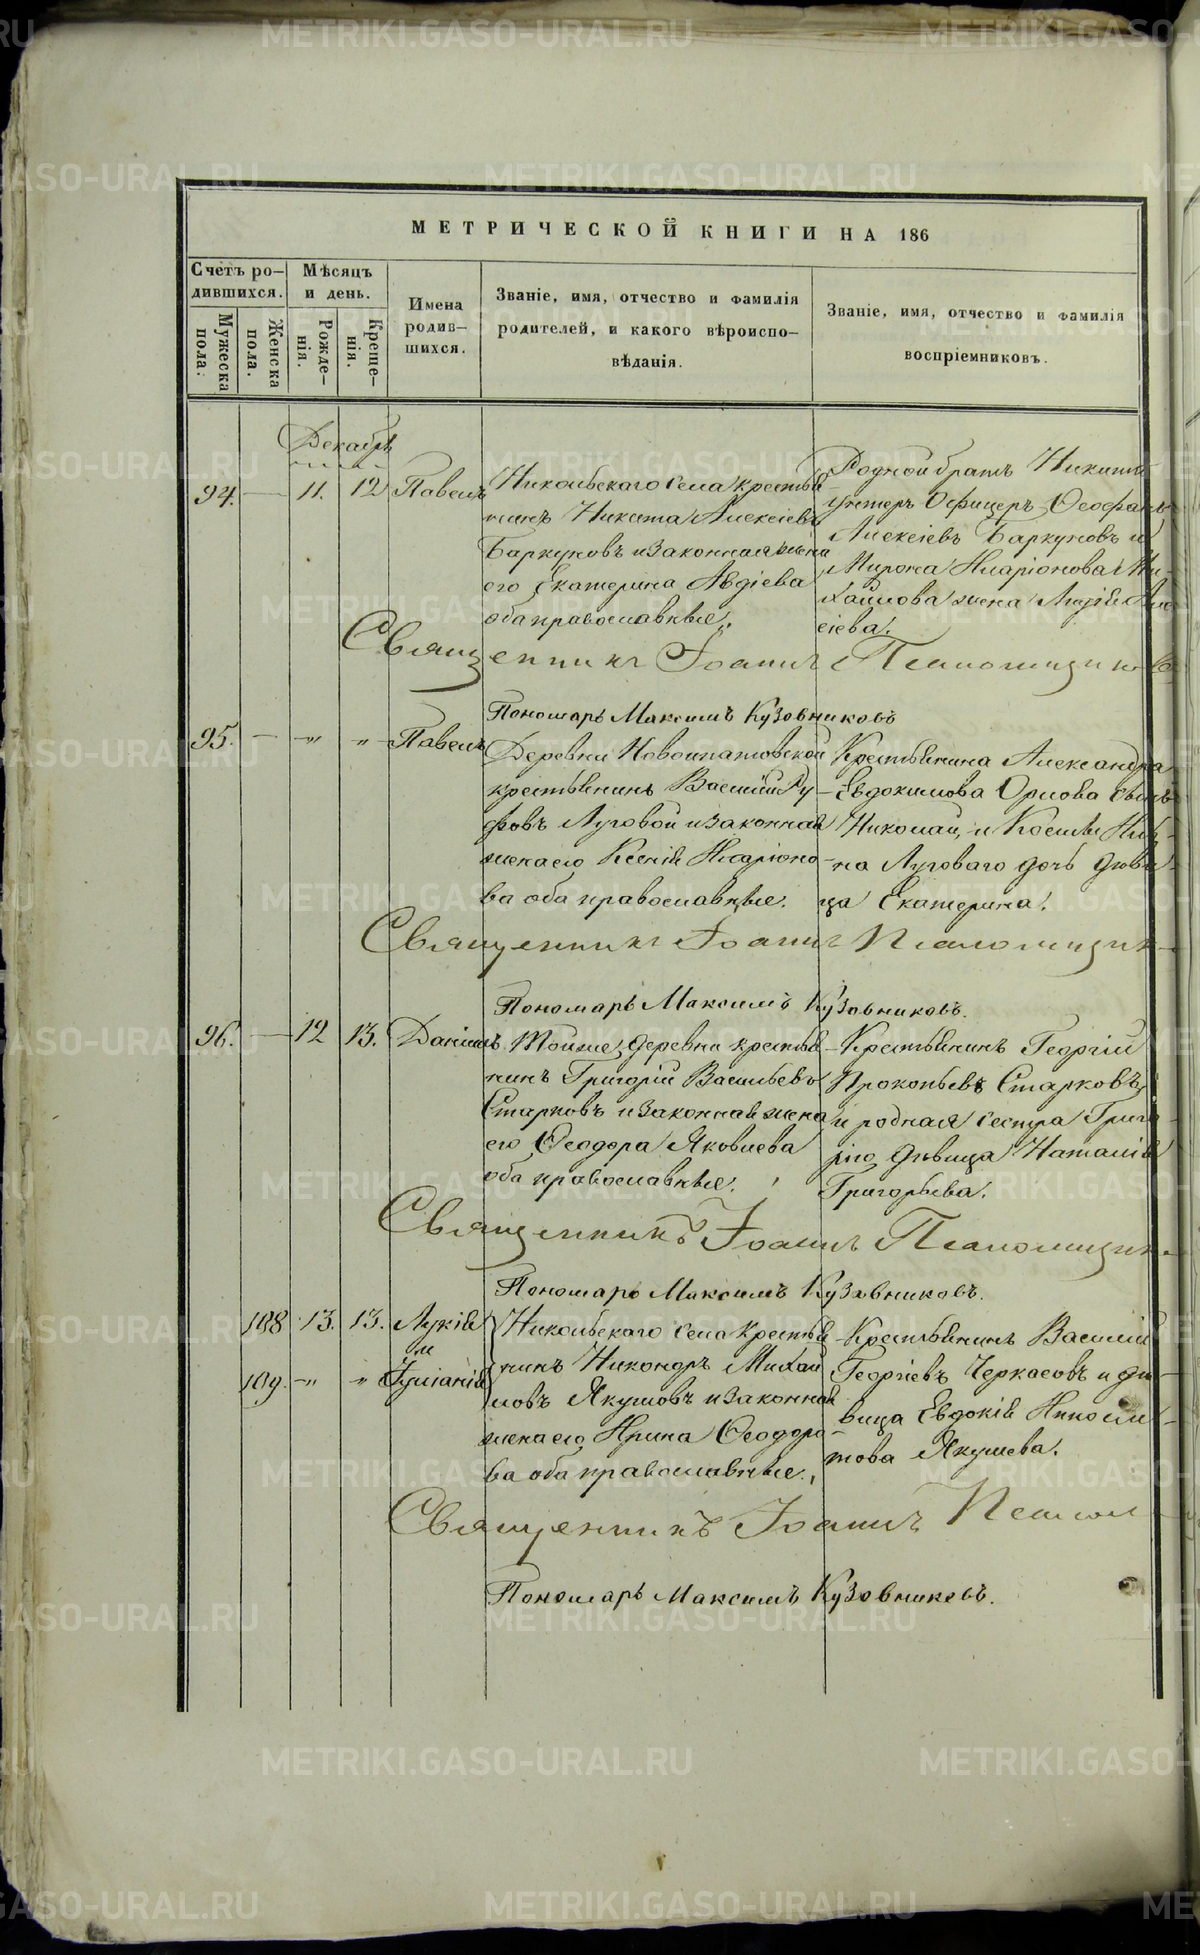 МЕТРИЧЕСКОЙ КНИГИ НА 186
Счетъ ро-
дившихся.
Мужеска
пола.
Женска
пола.
Мѣсяцъ
и день.
Рожде-
нія.
Креще-
нія.
Имена
родив-
шихся.
Званіе, имя, отчество и фамилія
родителей, и какого вѣроиспо-
вѣданія.
Званіе, имя, отчество и фамилія
воспріемниковъ.
Декабрь
94. — 11. 12 Павелъ
Никольскаго села крестья
нинъ Никита Алексіевъ
Баркуновъ и законная жена
его Екатерина Авдіева
оба православные.
Родной братъ Никиты
унтеръ Офицеръ Ѳеофанъ
Алексіевъ Баркуновъ и
Мирона Иларіонова Ми-
хайлова жена
сіева.
Священникъ Іоаннъ
Пономарь Максимъ Кузовниковъ
95. — -„- „ Павелъ
Деревни Новоипатовской
крестьянинъ Василій Ру-
фовъ Луговой и законная
жена его Ксенія Иларіоно-
ва оба православные.
Крестьянина Александра
Евдокимова Орлова сынъ
Николай, и Косьмы
на Луговаго дочь дѣви-
ца Екатерина.
Священникъ Іоаннъ
Пономарь Максимъ Кузовниковъ.
96. — 12 13. Даніилъ
Тойже деревни крестья-
нинъ Григорій Васильевъ
Старковъ и законная жена
его Ѳеодора Яковлева
оба православные.
Крестьянинъ Георгій
Прокопьевъ Старковъ
и родная сестра Григо-
рію дѣвица Наталія
Григорьева.
Священникъ Іоаннъ
Пономарь Максимъ Кузовниковъ.
108 13. 13. Лукія
и
109. -„- „ Іуліанія
Никольскаго села крестья
нинъ Никандръ Михай
ловъ Якушовъ и законная
жена его Ирина Ѳеодоро-
ва оба православные.
Крестьянинъ Василій
Георгіевъ Черкасовъ и дѣ-
вица Евдокія
това Якушева.
Священникъ Іоаннъ
Пономарь Максимъ Кузовниковъ.
METRIKI.GASO-URAL.RU